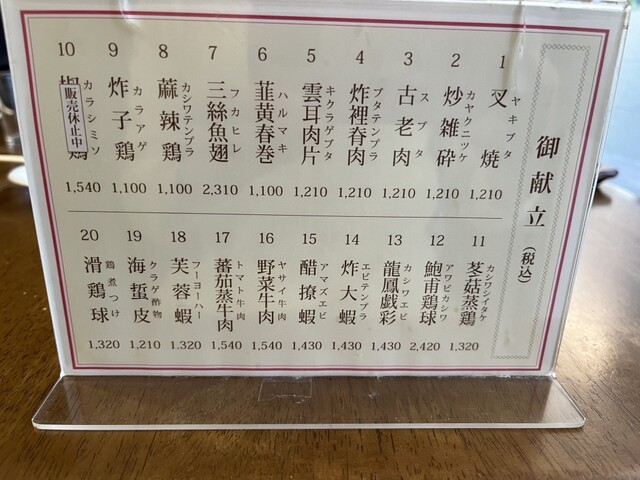 御献立(税込)
1 叉焼 ヤキブタ 1,210
2 炒雑砕 カヤクニツケ 1,210
3 古老肉 スブタ 1,210
4 炸裡脊肉 ブタテンプラ 1,210
5 雲耳肉片 キクラゲブタ 1,210
6 韮黄春巻 ハルマキ 1,100
7 三絲魚翅 フカヒレ 2,310
8 蔴辣鶏 カシワテンプラ 1,100
9 炸子鶏 カラアゲ 1,100
10 鶏 カラシミソ 1,540
販売休止中
11 茎菇蒸鶏 カシワシイタケ 1,320
12 鮑甫鶏球 アワビカシワ 2,420
13 龍鳳戯彩 カシワエビ 1,430
14 炸大蝦 エビテンプラ 1,430
15 醋撩蝦 アマズエビ 1,430
16 野菜牛肉 ヤサイ牛肉 1,540
17 蕃茄蒸牛肉 トマト牛肉 1,540
18 芙蓉蝦 フーヨーハー 1,320
19 海蜇皮 クラゲ酢物 1,210
20 滑鶏球 鶏煮つけ 1,320